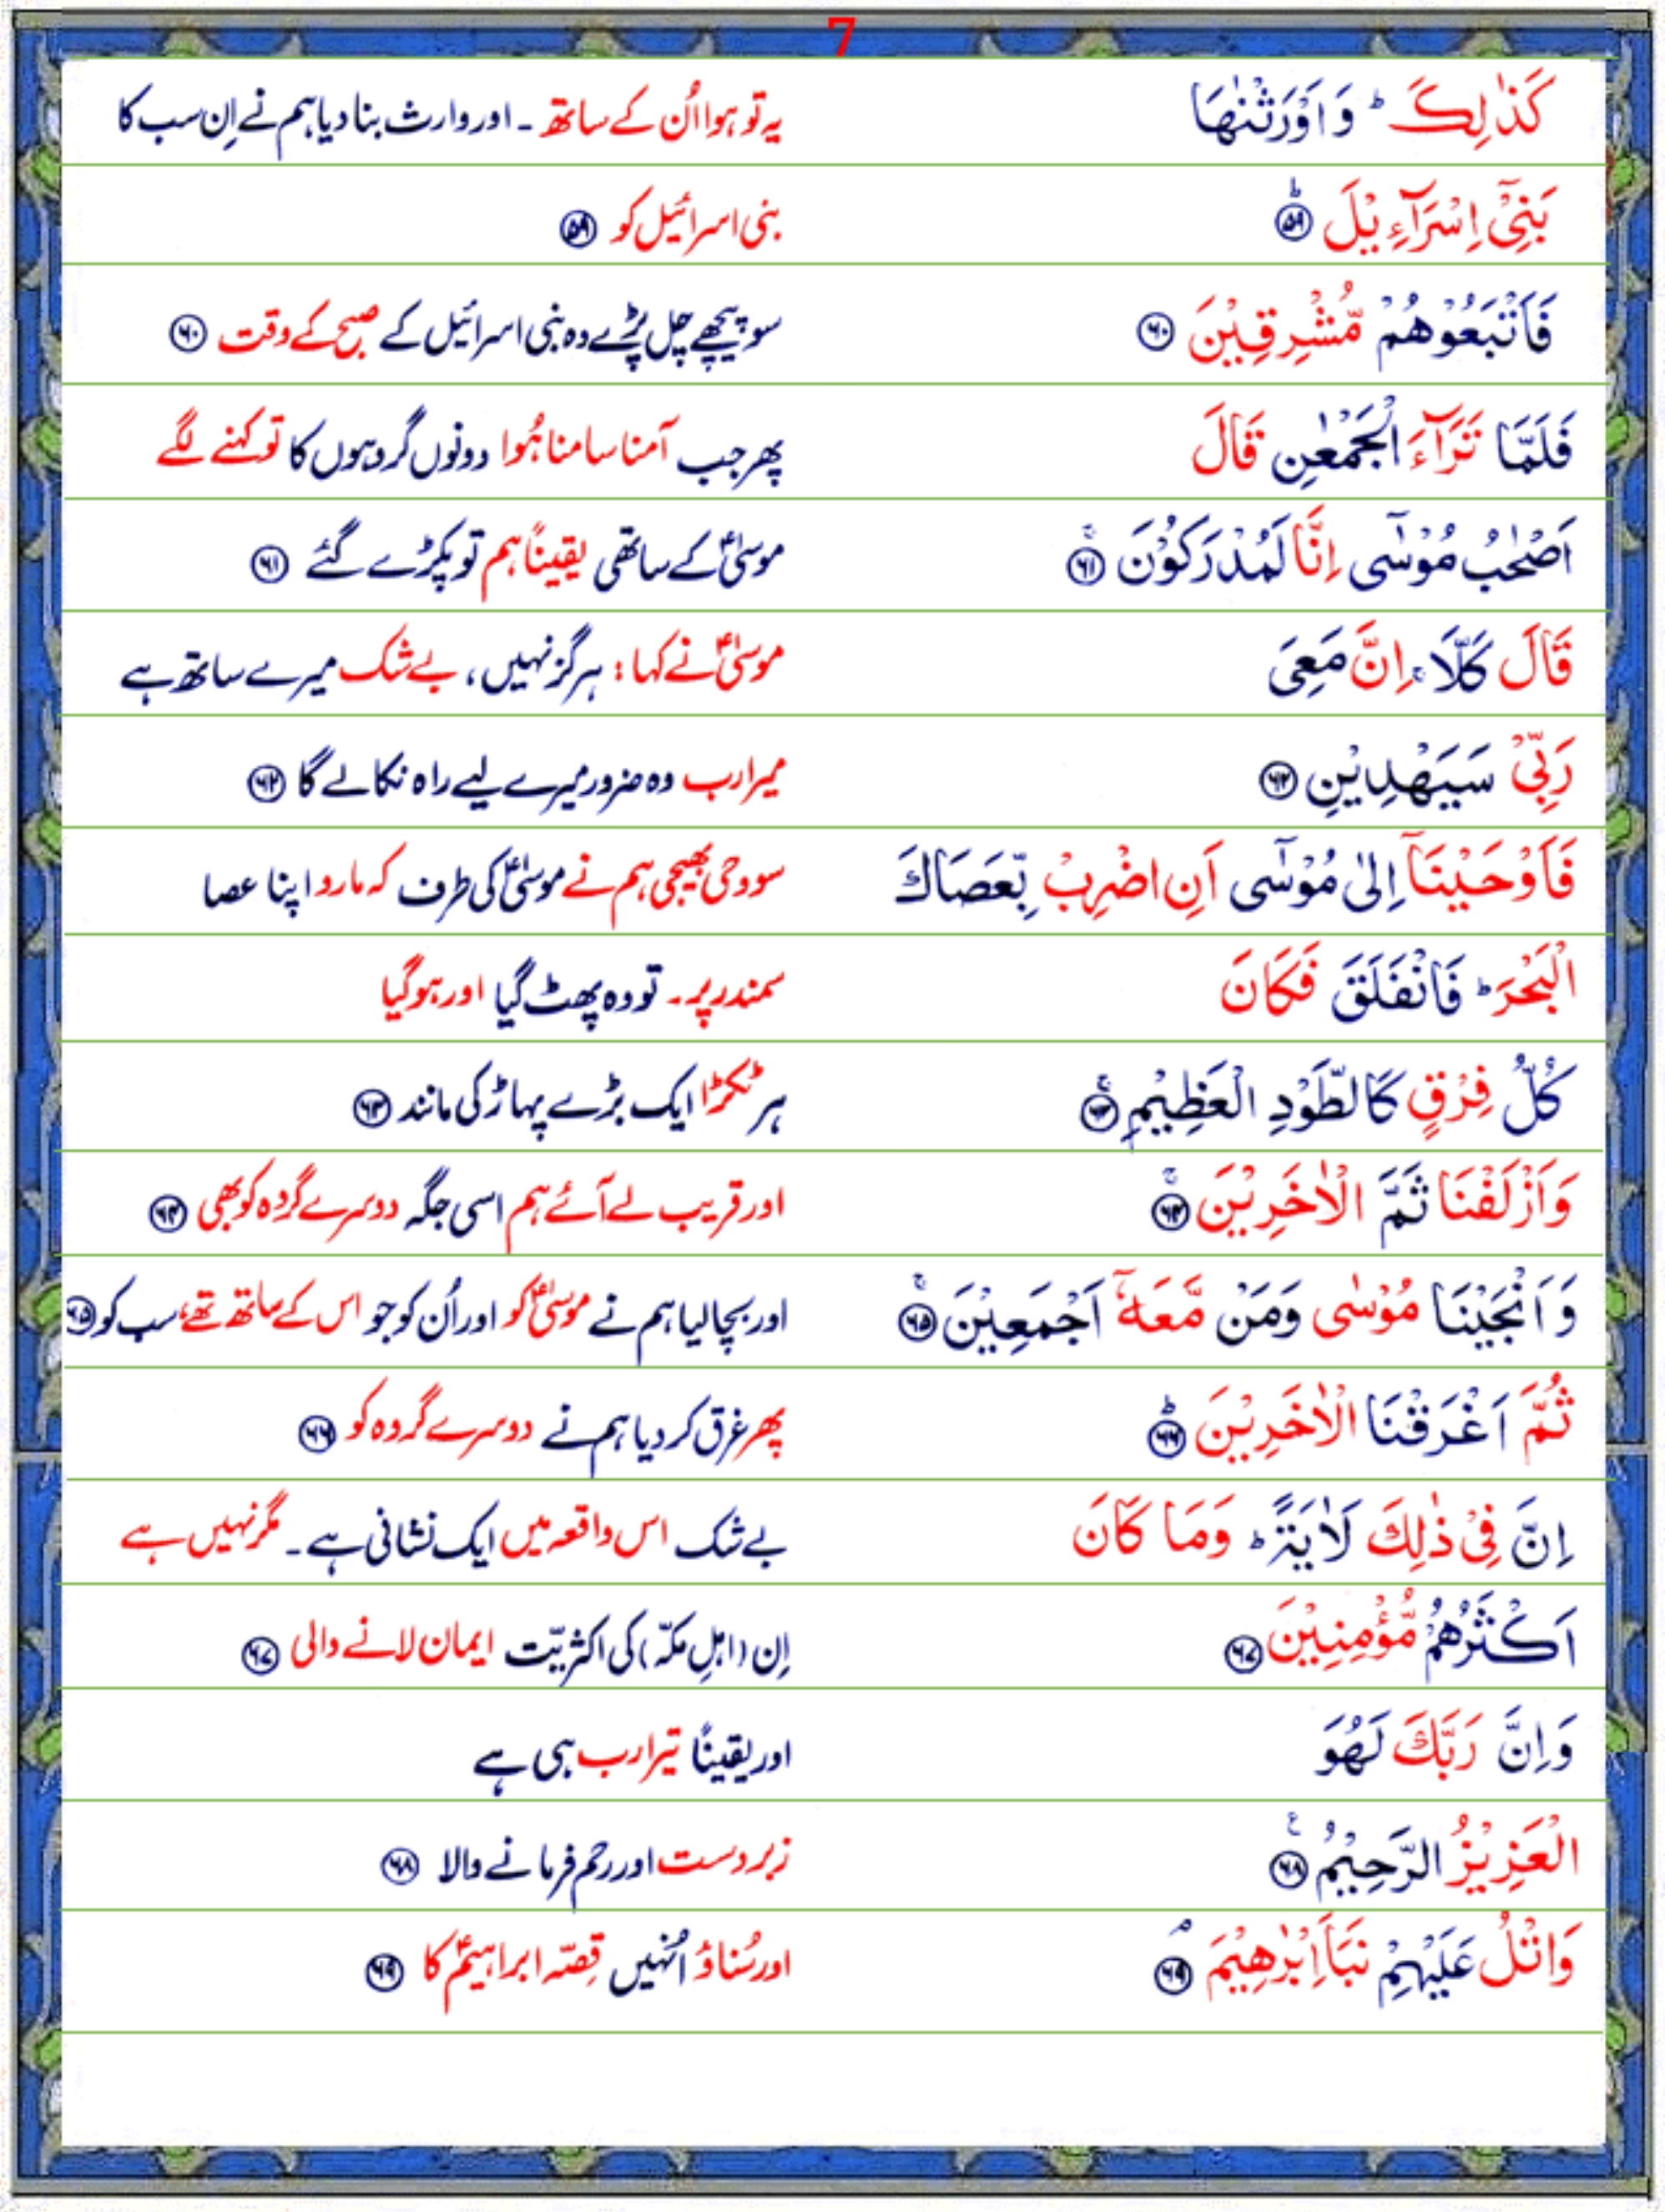 7
كَذٰلِكَ ؕ وَاَوْرَثْنٰهَا یہ تو ہوا اُن کے ساتھ ۔ اور وارث بنا دیا ہم نے اِن سب کا
بَنِیْۤ اِسْرَآءِیْلَ ؕ ۵۹ بنی اسرائیل کو ۵۹
فَاَتْبَعُوْهُمْ مُّشْرِقِیْنَ ۶۰ سو پیچھے چل پڑے وہ بنی اسرائیل کے صبح کے وقت ۶۰
فَلَمَّا تَرَآءَ الْجَمْعٰنِ قَالَ پھر جب آمنا سامنا ہُوا دونوں گروہوں کا تو کہنے لگے
اَصْحٰبُ مُوْسٰۤی اِنَّا لَمُدْرَكُوْنَ ۚ ۶۱ موسیٰؑ کے ساتھی یقیناً ہم تو پکڑے گئے ۶۱
قَالَ كَلَّا ۚ اِنَّ مَعِیَ موسیٰؑ نے کہا : ہرگز نہیں ، بے شک میرے ساتھ ہے
رَبِّیْ سَیَهْدِیْنِ ۶۲ میرا رب وہ ضرور میرے لیے راہ نکالے گا ۶۲
فَاَوْحَیْنَاۤ اِلٰی مُوْسٰۤی اَنِ اضْرِبْ بِّعَصَاكَ سو وحی بھیجی ہم نے موسیٰؑ کی طرف کہ مارو اپنا عصا
الْبَحْرَ ؕ فَانْفَلَقَ فَكَانَ سمندر پر ۔ تو وہ پھٹ گیا اور ہوگیا
كُلُّ فِرْقٍ كَالطَّوْدِ الْعَظِیْمِ ۚ ۶۳ ہر ٹکڑا ایک بڑے پہاڑ کی مانند ۶۳
وَاَزْلَفْنَا ثَمَّ الْاٰخَرِیْنَ ۚ ۶۴ اور قریب لے آئے ہم اسی جگہ دوسرے گروہ کو بھی ۶۴
وَاَنْجَیْنَا مُوْسٰی وَمَنْ مَّعَهٗۤ اَجْمَعِیْنَ ۚ ۶۵ اور بچا لیا ہم نے موسیٰؑ کو اور اُن کو جو اس کے ساتھ تھے، سب کو ۶۵
ثُمَّ اَغْرَقْنَا الْاٰخَرِیْنَ ؕ ۶۶ پھر غرق کر دیا ہم نے دوسرے گروہ کو ۶۶
اِنَّ فِیْ ذٰلِكَ لَاٰیَةً ؕ وَمَا كَانَ بے شک اس واقعہ میں ایک نشانی ہے ۔ مگر نہیں ہے
اَكْثَرُهُمْ مُّؤْمِنِیْنَ ۶۷ اِن (اہلِ مکّہ) کی اکثریّت ایمان لانے والی ۶۷
وَاِنَّ رَبَّكَ لَهُوَ اور یقیناً تیرا رب ہی ہے
الْعَزِیْزُ الرَّحِیْمُ ۠ ۶۸ زبردست اور رحم فرمانے والا ۶۸
وَاتْلُ عَلَیْهِمْ نَبَاَ اِبْرٰهِیْمَ ۘ ۶۹ اور سُناؤ اُنہیں قِصّہ ابراہیمؑ کا ۶۹